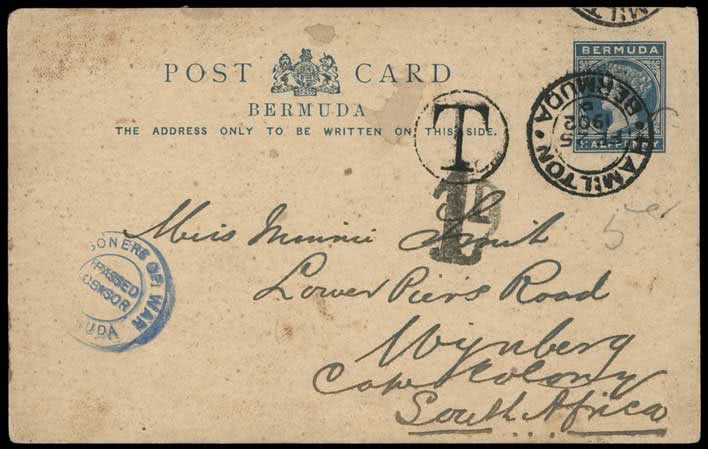 MILT
BERMUDA
HALFPENNY
POST CARD
BERMUDA
THE ADDRESS ONLY TO BE WRITTEN ON THIS SIDE.
T
1D
HAMILTON BERMUDA
FE 5
1902
5
Miss Minnie Smit
Lower Piers Road
Wynberg
Cape Colony
South Africa
SONERS OF WAR
PASSED
CENSOR
UDA